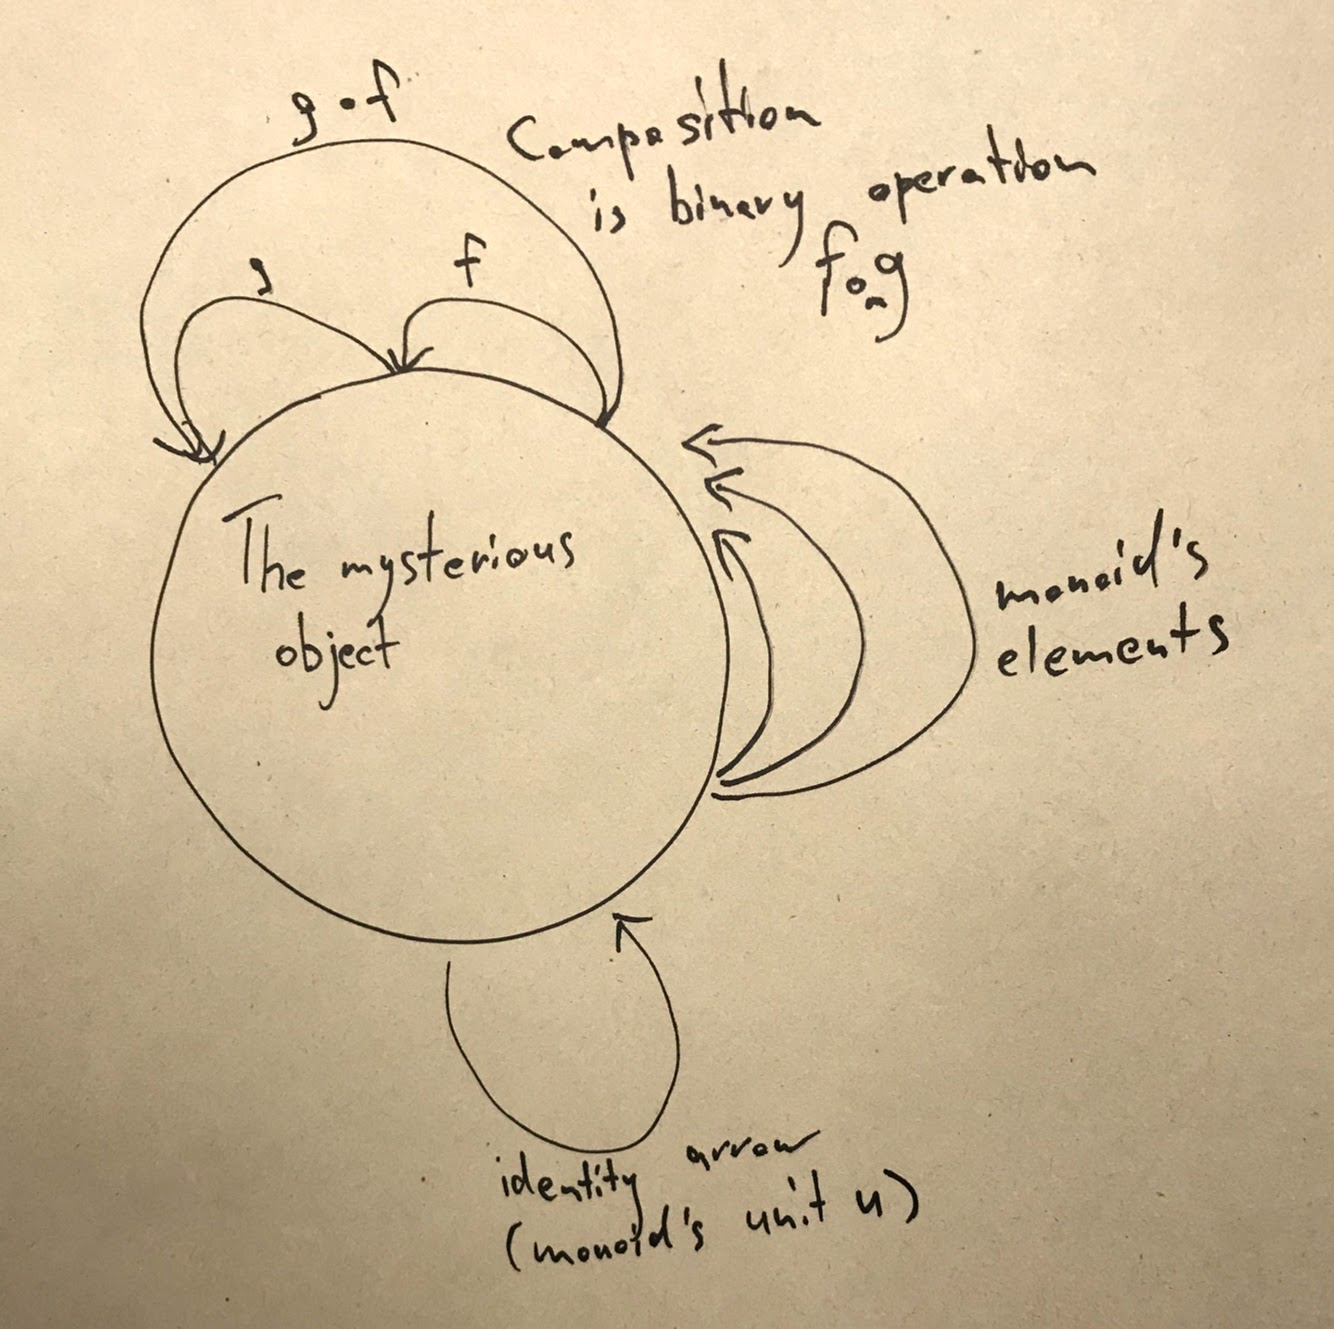 g∘f
Composition
is binary operation
f∘g
g
f
The mysterious
object
monoid's
elements
identity arrow
(monoid's unit u)